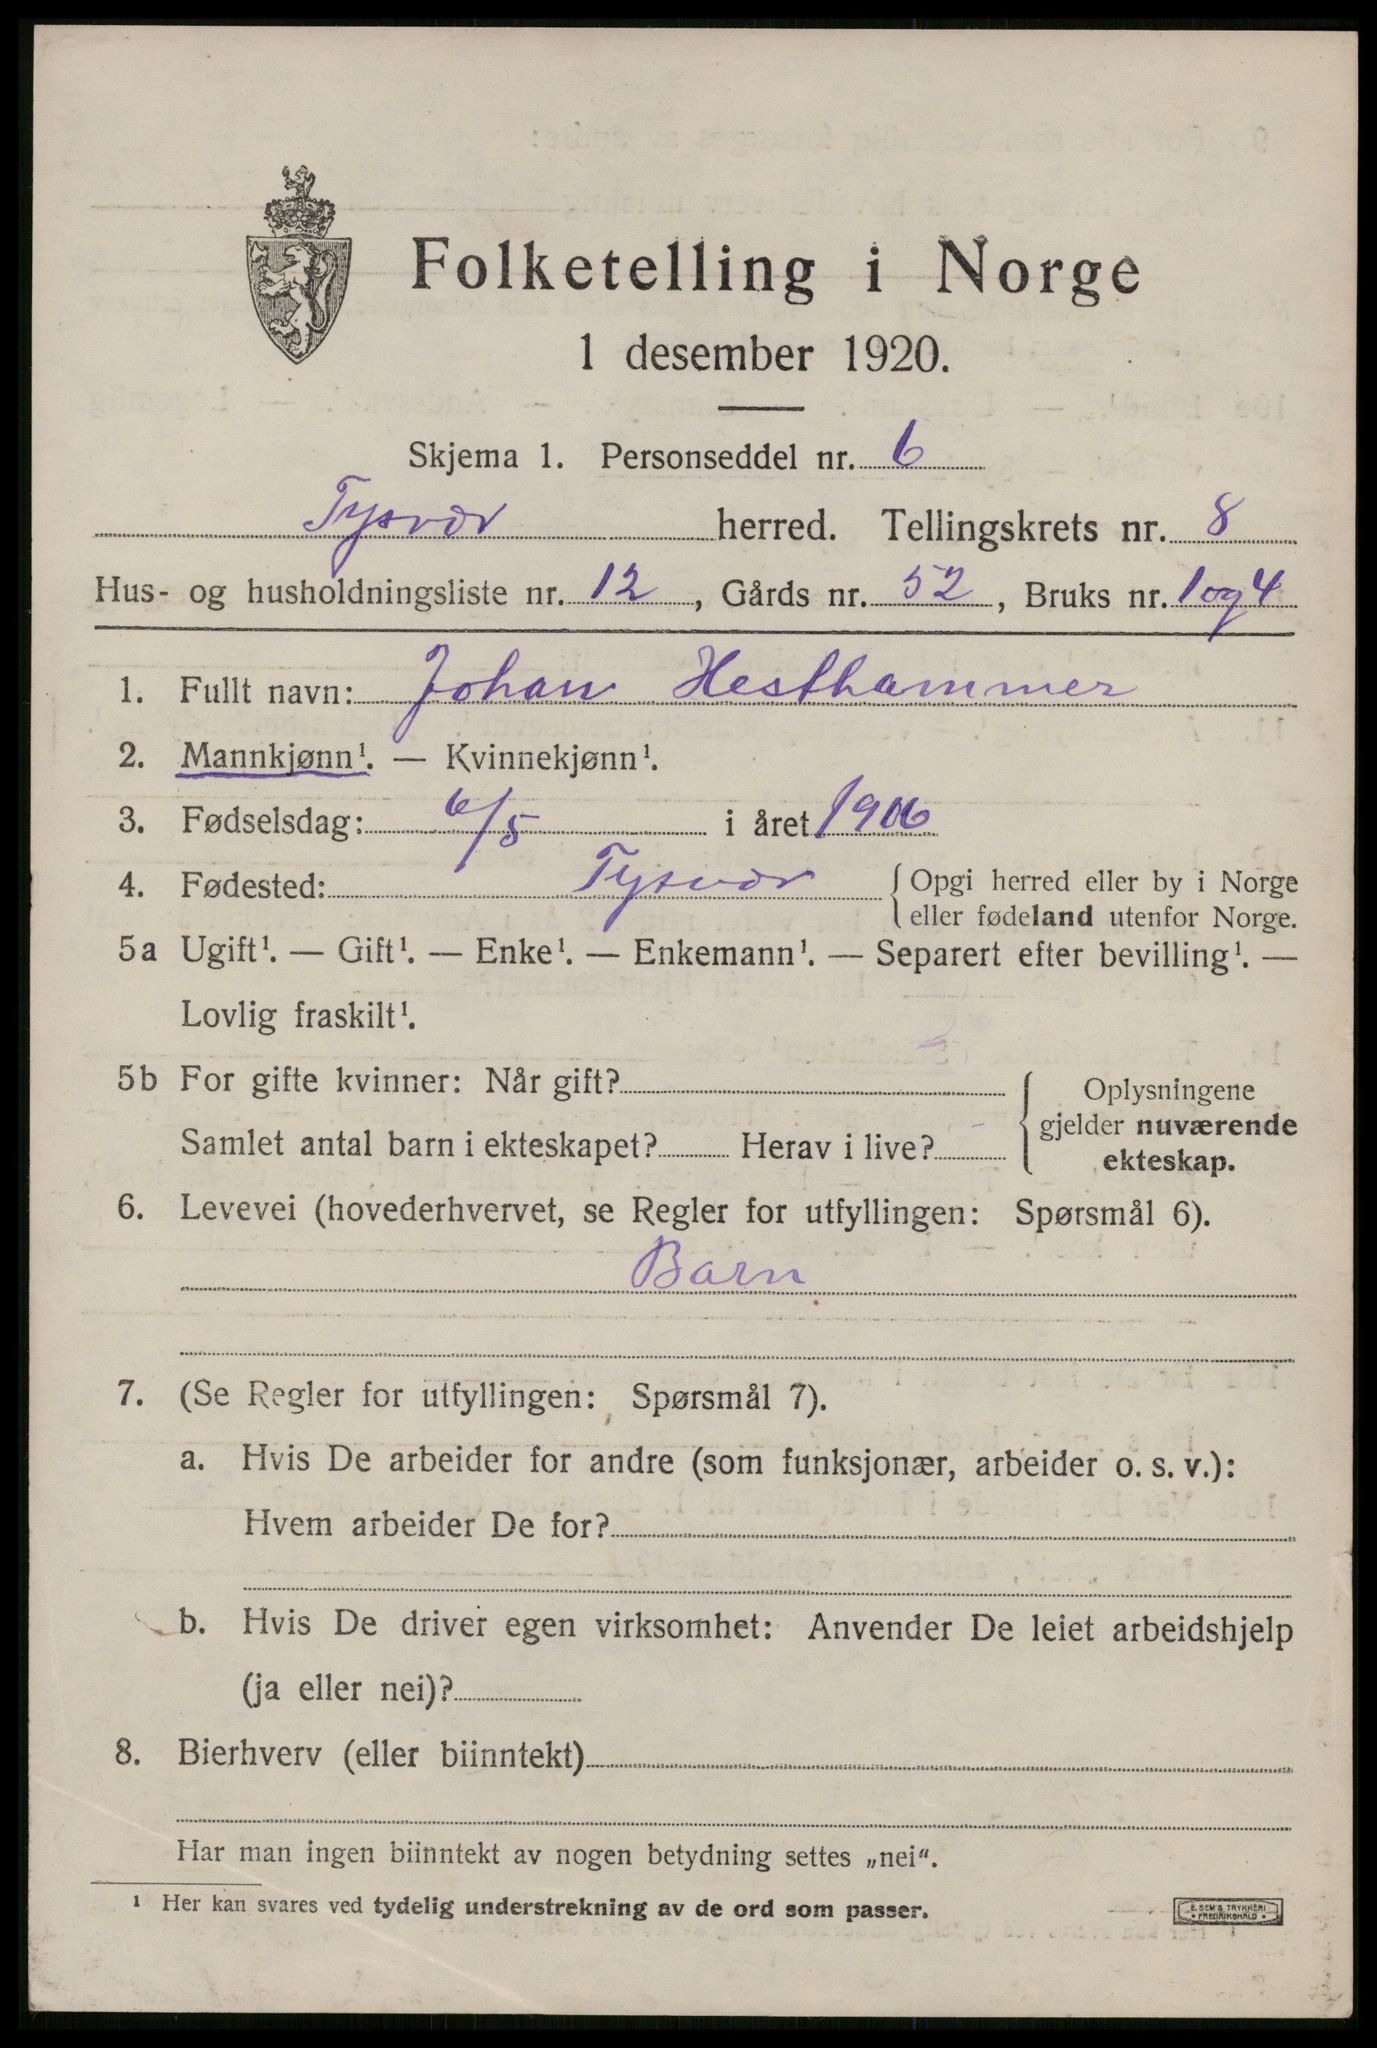 Folketelling i Norge
1 desember 1920.
Skjema 1. Personseddel nr. 6
Tysvær herred. Tellingskrets nr. 8
Hus- og husholdningsliste nr. 12, Gårds nr. 52, Bruks nr. 1 og 4
1. Fullt navn: Johan Hesthammer
2. Mannkjønn¹. — Kvinnekjønn¹.
3. Fødselsdag: 6/5 i året 1906
4. Fødested: Tysvær { Opgi herred eller by i Norge
eller fødeland utenfor Norge.
5a Ugift¹. — Gift¹. — Enke¹. — Enkemann¹. — Separert efter bevilling¹. —
Lovlig fraskilt¹.
5b For gifte kvinner: Når gift? { Oplysningene
gjelder nuværende
Samlet antal barn i ekteskapet? Herav i live? ekteskap.
6. Levevei (hovederhvervet, se Regler for utfyllingen: Spørsmål 6).
Barn
7. (Se Regler for utfyllingen: Spørsmål 7).
a. Hvis De arbeider for andre (som funksjonær, arbeider o. s. v.):
Hvem arbeider De for?
b. Hvis De driver egen virksomhet: Anvender De leiet arbeidshjelp
(ja eller nei)?
8. Bierhverv (eller biinntekt)
Har man ingen biinntekt av nogen betydning settes „nei“.
¹ Her kan svares ved tydelig understrekning av de ord som passer.
E. SEM'S TRYKKERI
FREDRIKSHALD